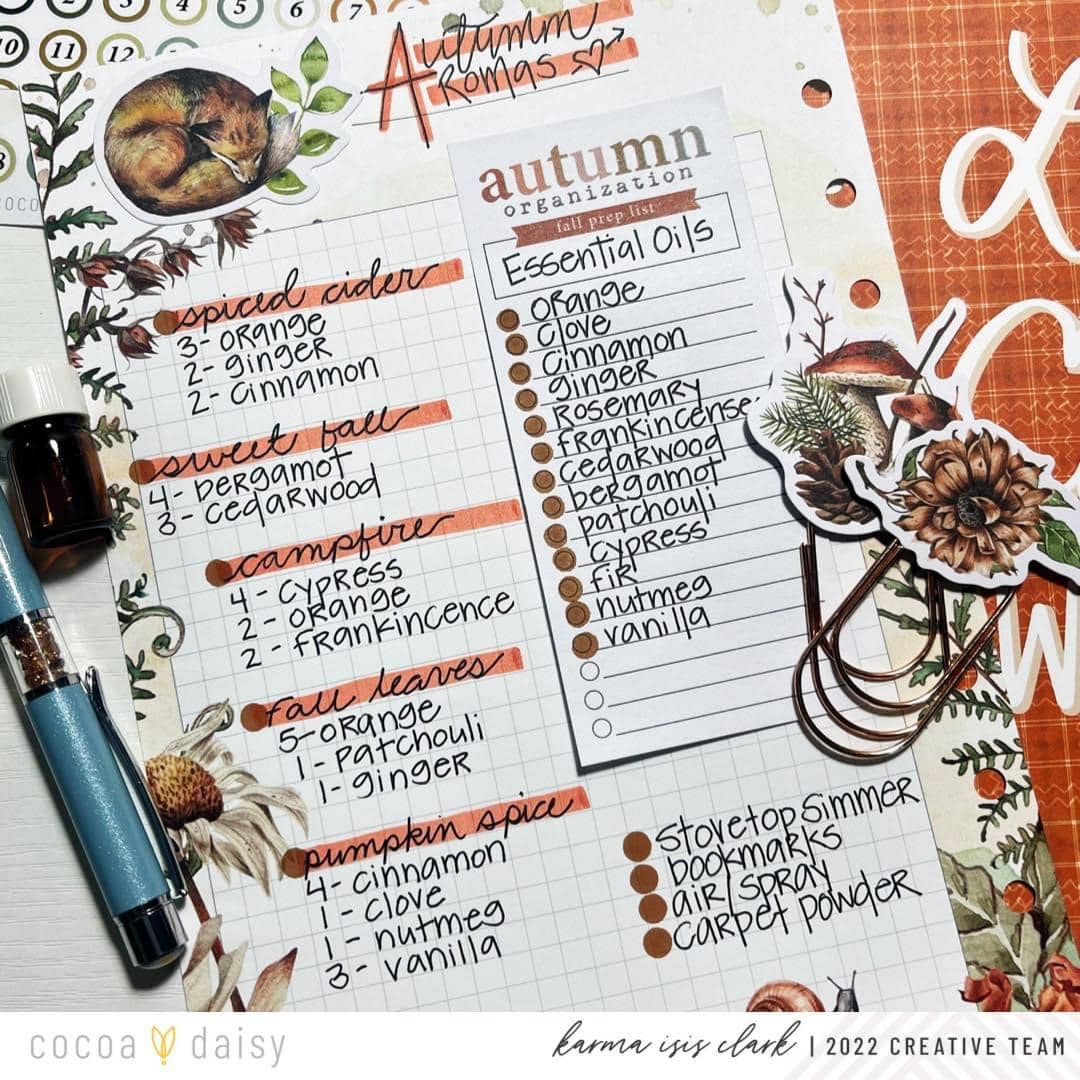 2 3 4 5 6 7
10 11 12
8
COCO
Autumn
Aromas
autumn
organization
fall prep list
Essential Oils
orange
clove
cinnamon
ginger
Rosemary
frankincense
cedarwood
bergamot
patchouli
cypress
fir
nutmeg
vanilla
spiced cider
3- orange
2- ginger
2- cinnamon
sweet fall
4- bergamot
3- cedarwood
campfire
4- cypress
2- orange
2- frankincence
fall leaves
5- orange
1- patchouli
1- ginger
pumpkin spice
4- cinnamon
1- clove
1- nutmeg
3- vanilla
stovetop simmer
bookmarks
air/spray
carpet powder
cocoa daisy
karma isis clark | 2022 CREATIVE TEAM